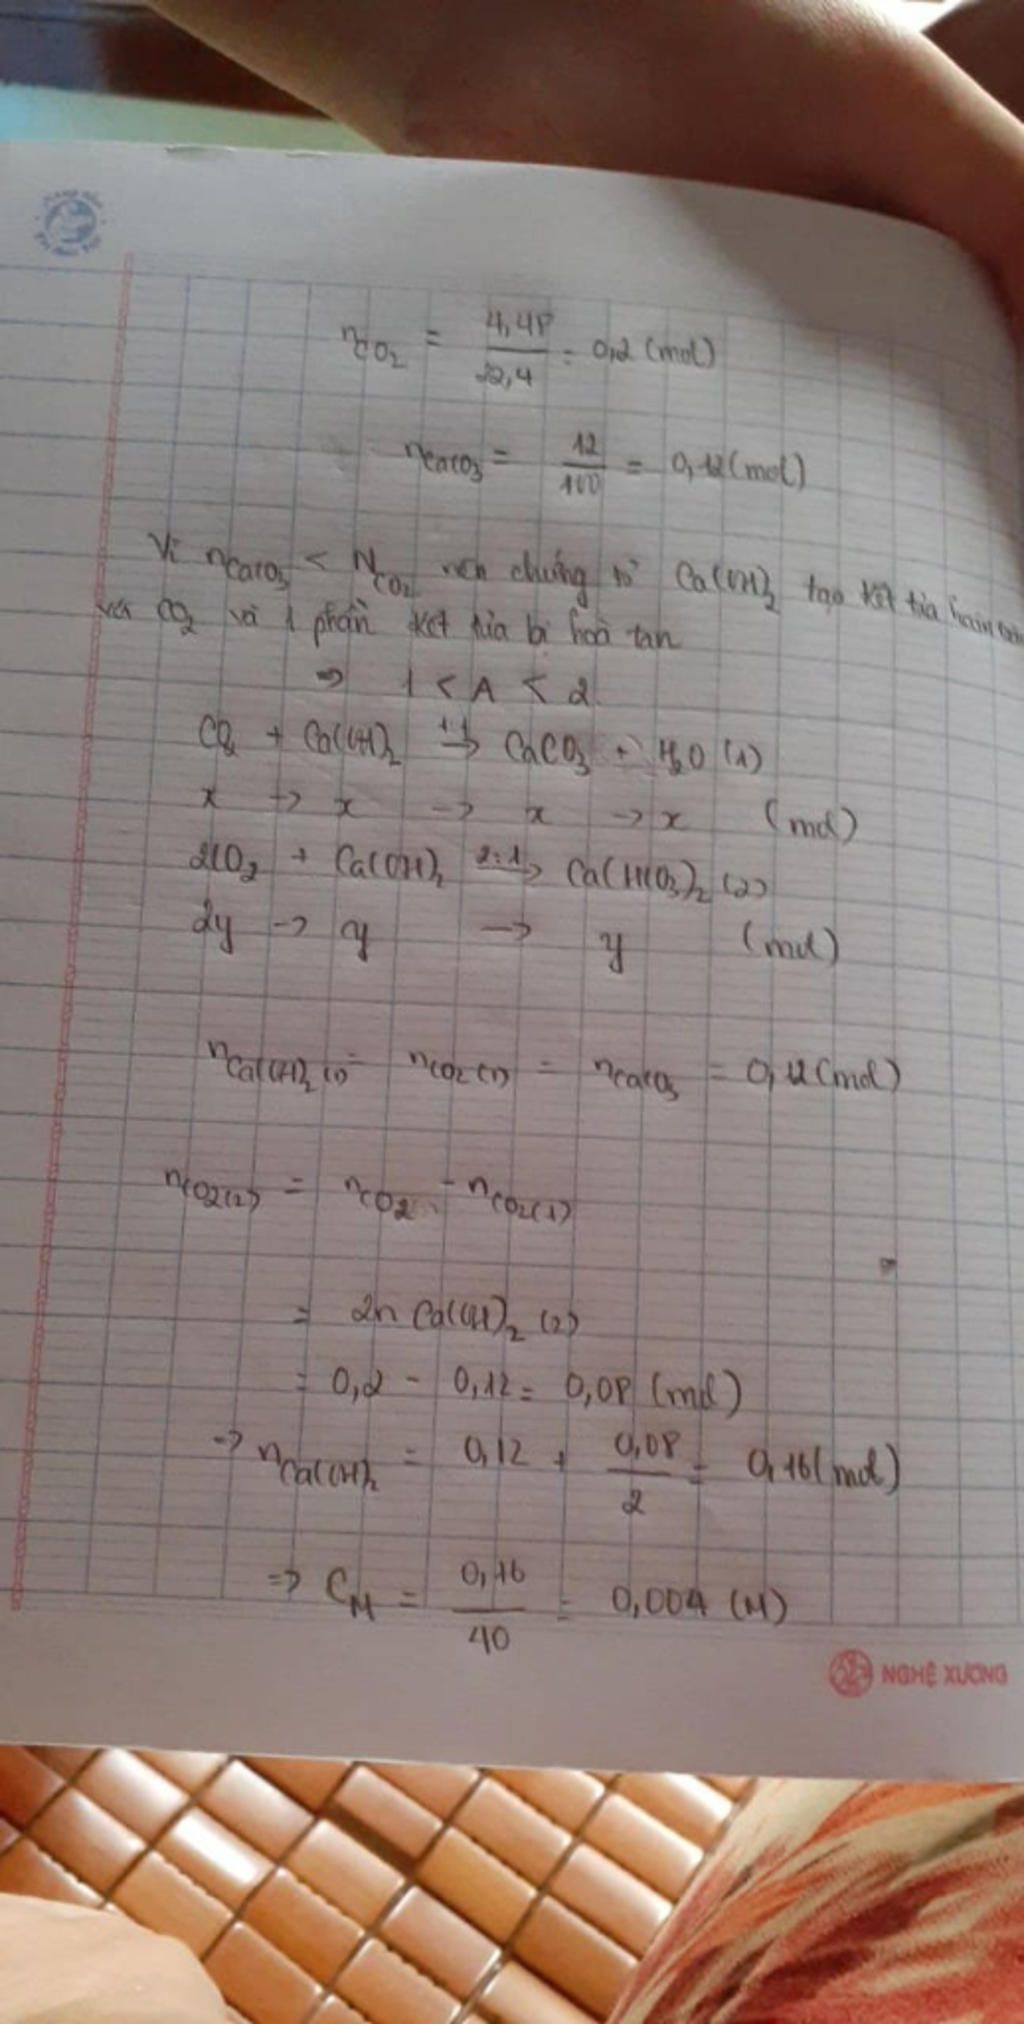 nCO₂ = 4,48/22,4 = 0,2 (mol)
nCaCO₃ = 12/100 = 0,12 (mol)
Vì nCaCO₃ < NCO₂ nên chứng tỏ Ca(OH)₂ tạo kết tủa hoàn toàn
với CO₂ và 1 phần kết tủa bị hoà tan
⇒ 1 < A < 2
CO₂ + Ca(OH)₂ 1:1→ CaCO₃ + H₂O (1)
x → x → x → x (mol)
2CO₂ + Ca(OH)₂ 2:1→ Ca(HCO₃)₂ (2)
2y → y → y (mol)
nCa(OH)₂(1) = nCO₂(1) = nCaCO₃ = 0,12 (mol)
nCO₂(2) = nCO₂ - nCO₂(1)
= 2n Ca(OH)₂ (2)
= 0,2 - 0,12 = 0,08 (mol)
→ nCa(OH)₂ = 0,12 + 0,08/2 = 0,16 (mol)
⇒ CM = 0,16/40 = 0,004 (M)
NGHỆ XƯƠNG